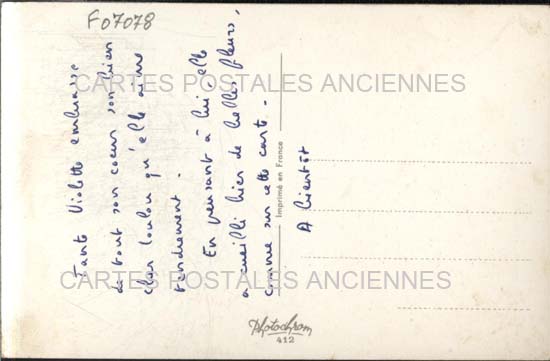 F07078
Tante Violette embrasse
de tout son coeur son bien
cher loulou qu'elle aime
tendrement.
En pensant à lui, elle
a cueilli hier de belles fleurs,
comme sur cette carte.
A bientôt
Imprimé en France
Photochrom
412
CARTES POSTALES ANCIENNES
CARTES POSTALES ANCIENNES